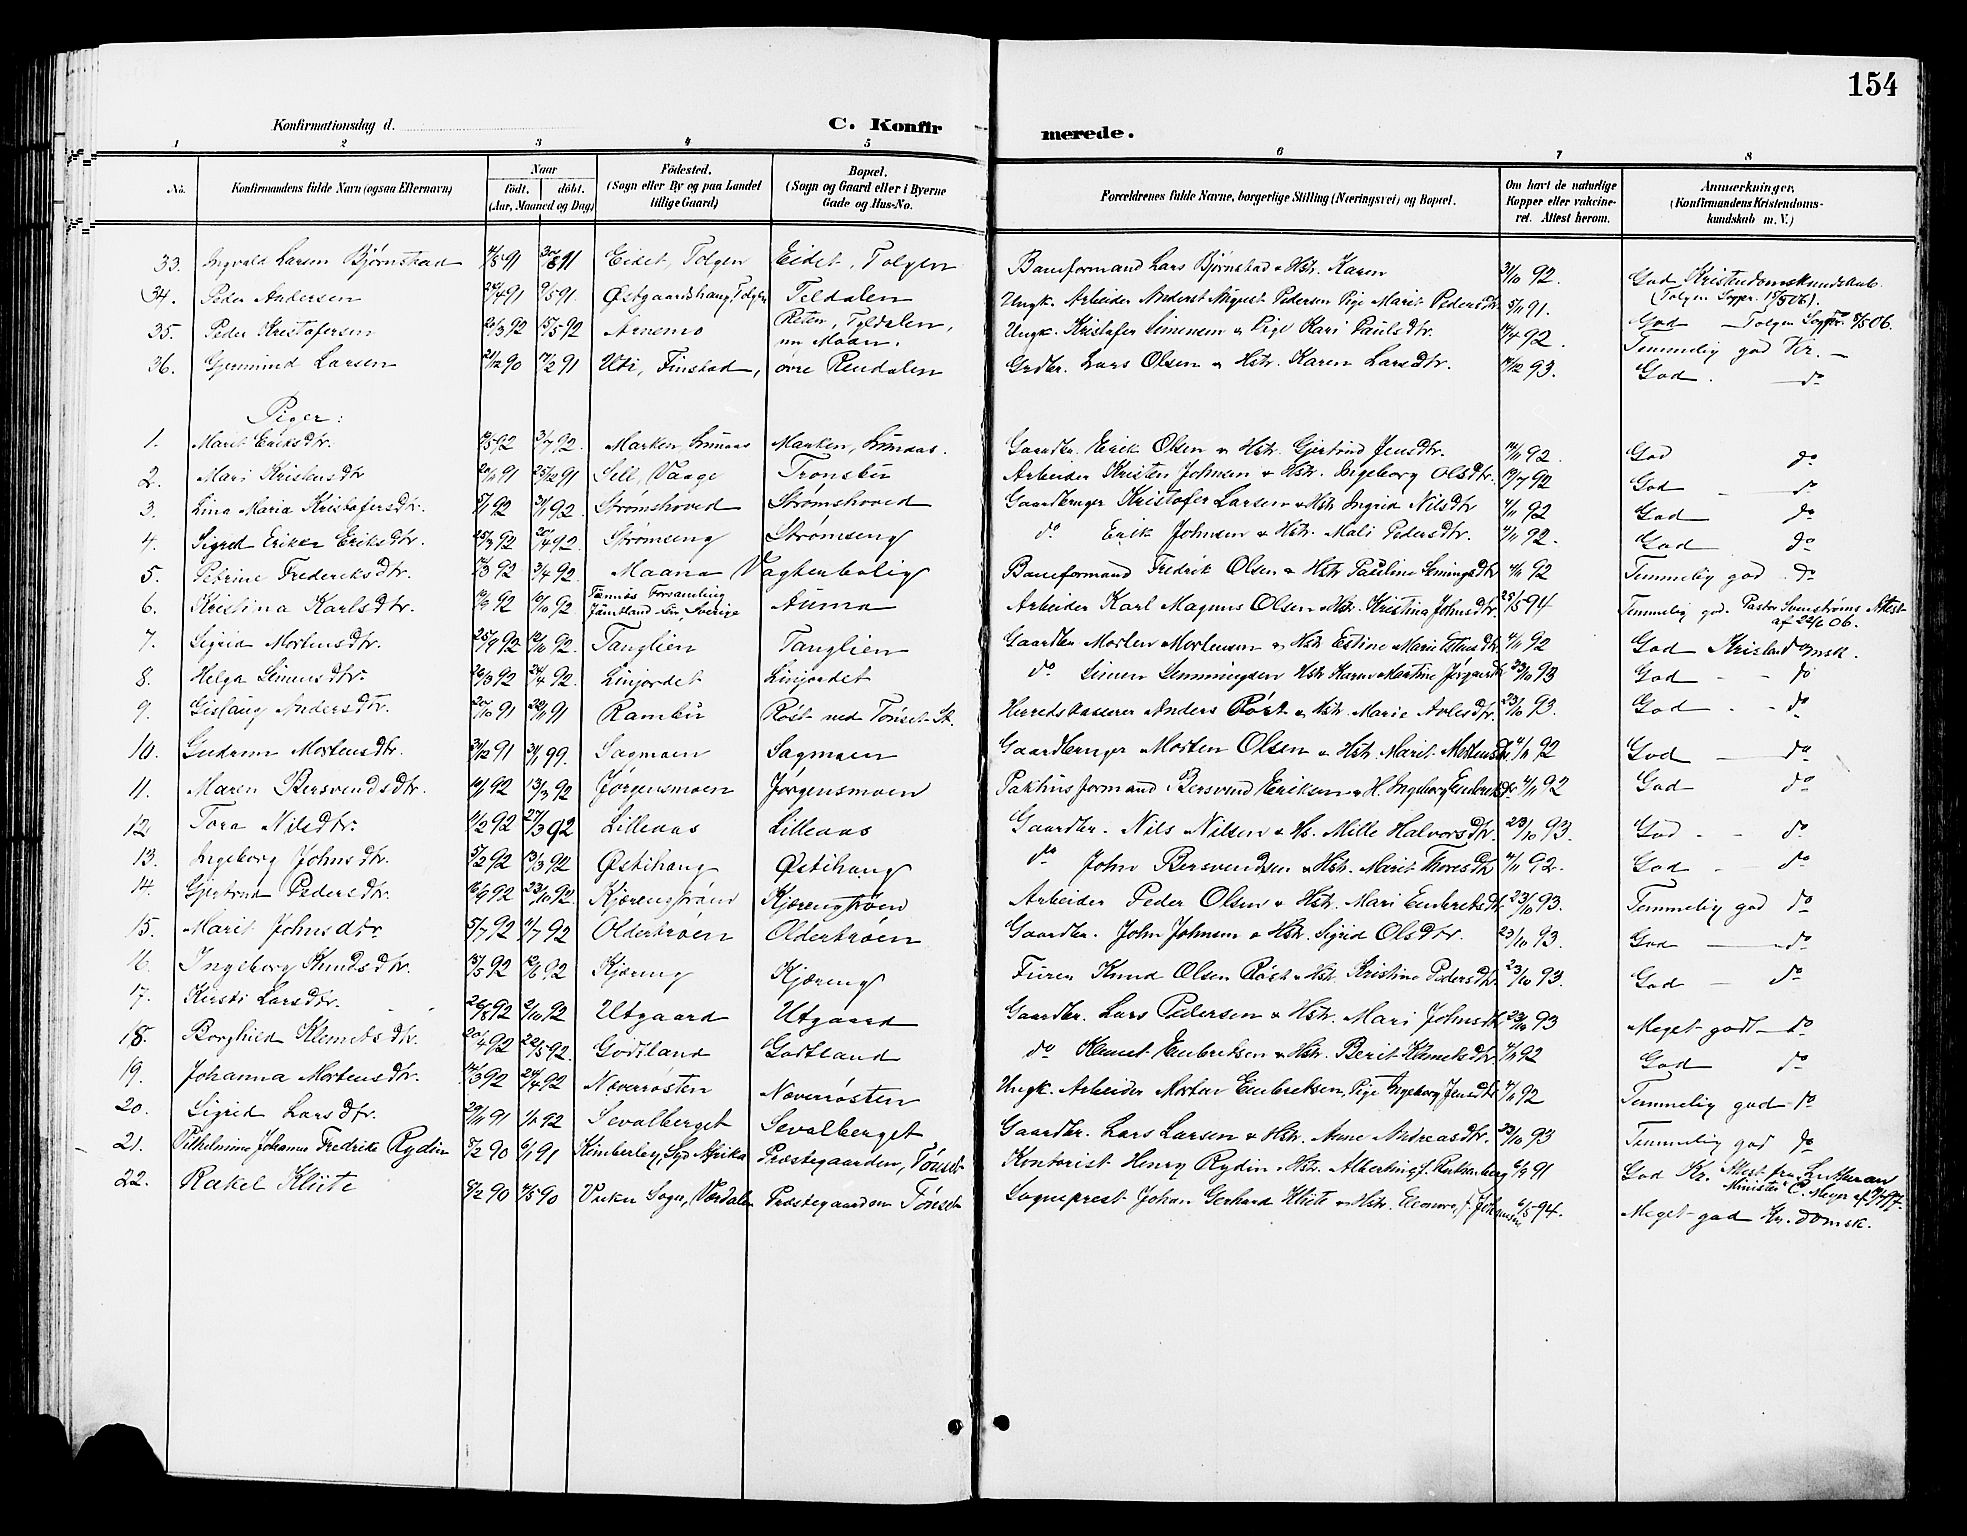 154
Konfirmationsdag d.
C. Konfirmerede.
1 2 3 4 5 6 7 8
No. Konfirmandens fulde Navn (ogsaa Efternavn) Naar født. døbt. (Aar, Maaned og Dag) Fødested. (Sogn eller By og paa Landet tillige Gaard) Bopæl. (Sogn og Gaard eller i Byerne Gade og Hus-No. Forældrenes fulde Navne, borgerlige Stilling (Næringsvei) og Bopæl. Om havt de naturlige Kopper eller vakcineret. Attest herom. Anmærkninger, (Konfirmandens Kristendomskundskab m. V.)
33. Ingvald Larsen Bjørnstad Eidet, Tolgen Eidet, Tolgen Baneformand Lars Bjørnstad & Hstr. Karen 31/10 92. God Kristendomskundskab.
34. Peder Andersen Østgaardshaug, Tolgen Teldalen Ungk. Arbeider Anderst August Pedersen Pige Marit Pedersdtr. 5/11 91. (Tolgen Sogpr.
35. Peder Kristofersen 15/5 92 Arnemo Ungk. Kristofer Simensen & Pige Kari Paulsdtr. 14/4 92. God — Tolgen
nu Moan. Temmelig god Kr. —
36. Gjermund Larsen 21/12 90 17/2 91 Uti, Finstad, øvre Rendalen Grdbr. Lars Olsen & Hstr. Karen Larsdtr. 14/12 93. God. — do
Piger:
1. Marit Eriksdtr. 31/7 92. Marken, Marken, Gaardbr. Erik Olsen & Hstr. Gjertrud Jensdtr. 92. God do
2. Mari Kristensdtr 25/12 91 Sell, Vaage Tronsbu Arbeider Kristen Johnsen & Hstr. Ingeborg Olsdtr. 92 God — do
3. Lina Maria Kristofersdtr. 31/1 92. Strømshoved Strømshoved Gaardbruger Kristofer Larsen & Hstr Ingrid Nilsdtr 4/11 92 God do
4. Sigred Erikke Eriksdtr. 25/3 92 20/4 92. Strømseng Strømseng do Erik Johnsen & Hstr. Mali Pedersdtr. 4/11 92. God do
5. Petrine Frederiksdtr. 92 3/4 92. Maana Vagterbolig Baneformand Fredrik Olsen & Hstr Pauline 4/11 92 Temmelig god do
6. Kristina Karlsdtr. 92 92. Tännäs Forsamling Jämtland Sverige Auma Arbeider Karl Magnus Olsen & Hstr. Kristina Johnsdtr. 29/5 94 Temmelig god. Pastor Attest af 06.
7. Sigrid Mortensdtr. 25/9 92 92. Tanglien Tanglien Gaardbr Morten Mortensen & Hstr Estine Marie 4/11 92 God Kristendomsk.
8. Helga Simensdtr. 92 24/4 92. Linjordet Linjordet do Simen Hstr Karen Martine 23/10 93 God — do
9. Gislaug Andersdtr. 20/10 91 91 Rambu Røst ved Tønset St. Herredskasserer Anders Røst & Hstr. Marie 23/10 93. God — do
10. Gudrun Mortensdtr. 31/12 91 31/1 99. Sagmoen Sagmoen Gaardbruger Morten Olsen & Hstr. Marit Mortensdtr. 4/11 92 God — do
11. Maren Bersvendsdtr. 92 13/3 92 Jørgensmoen Jørgensmoen Pakhusformand Bersvend Eriksen & H. Ingeborg 4/11 92 God do
12 Tora Nilsdtr. 92 27/3 92 Lilleaas Lilleaas Gaardbr. Nils Nilsen & Hs. Mille Halvorsdtr. 23/10 93. God — do
13. Ingeborg Johnsdtr. 5/2 92 13/3 92 Østihaug Østihaug do John Bersvendsen & Hstr. Marit Thoresdtr 4/11 92. God do
14. Gjertrud Pedersdtr. 92 23/10 92. Kjærengtrøen Arbeider Peder Olsen & Hstr. Mari 23/10 93. Temmelig god do
15. Marit Johnsdtr 5/7 92 92 Oldertrøen Oldertrøen Gaardbr. John Johnsen & Hstr. Sigrid Olsdtr. 23/10 93. God — do
16. Ingeborg Knudsdtr. 92 92 Kjæreng Kjæreng Furer Knud Olsen Røst & Hstr. Kristine Pedersdtr 23/10 93. God — do
17. Kirsti Larsdtr. 26/8 92 2/10 92 Utgaard Utgaard Gaardbr. Lars Pedersen & Hstr. Mari Johnsdtr 23/10 93 Meget godt do
18. Borghild Klemetsdtr. 20/4 92 22/5 92. Godtland Godtland do Klemet Embretsen & Hstr. Berit Klemetsdtr 4/11 92 God do
19. Johanna Mortensdtr. 92 24/4 92 Næverrøsten Næverrøsten Ungk. Arbeider Morten Embretsen, Pige Ingeborg Jensdtr 4/11 92 Temmelig god do
20. Sigrid Larsdtr. 29/11 91 92 Sevalberget Sevalberget Gaardbr. Lars Larsen & Hstr. Anne Andreasdtr. 23/10 93 Temmelig god do
21. Vilhelmine Johanne Fredrike Rydin 90 6/1 91 Kimberley, Syd Afrika Præstegaarden, Tønset Kontorist Henry Rydin Hstr. 91 God Kr. Attest fra Lutheran Minister
22. Rakel Klüte 90 90 Vuku Sogn, Værdalen Præstegaarden Tønset Sogneprest Johan Gerhard Klüte & Hstr. Eleonore, f. 6/5 94. Meget god Kr.domsk.